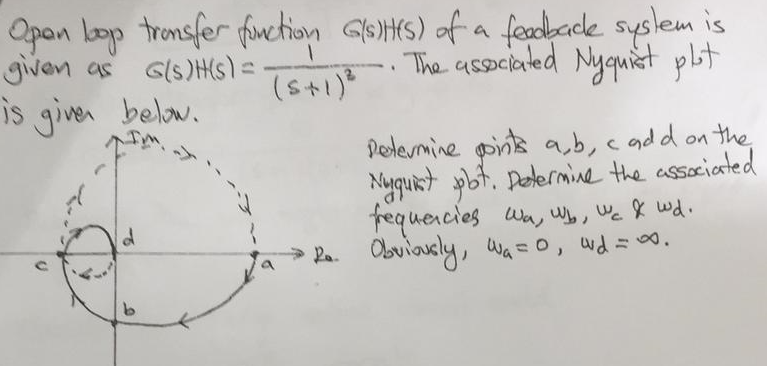 Open loop transfer function G(s)H(s) of a feedback system is
given as G(s)H(s) = 1/(s+1)³. The associated Nyquist plot
is given below.
Im
Determine points a, b, c add on the
Nyquist plot. Determine the associated
frequencies ωa, ωb, ωc & ωd.
Obviously, ωa = 0, ωd = ∞.
d
c
a
Re
b